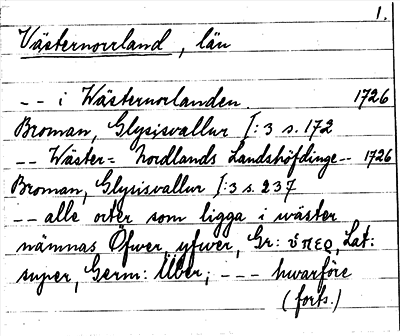 1.
Västernorrland, län
-- i Wästernorlanden. 1726
Broman, Glysisvallur I:3 s. 172
-- Wäster= Nordlands Landshöfdinge -- 1726
Broman, Glysisvallur I:3 s. 237
-- alle orter som ligga i wäster
nämnas Öfwer, yfwer, Gr: ὑπερ, Lat:
super, Germ: Über; --- hwarföre
(forts.)